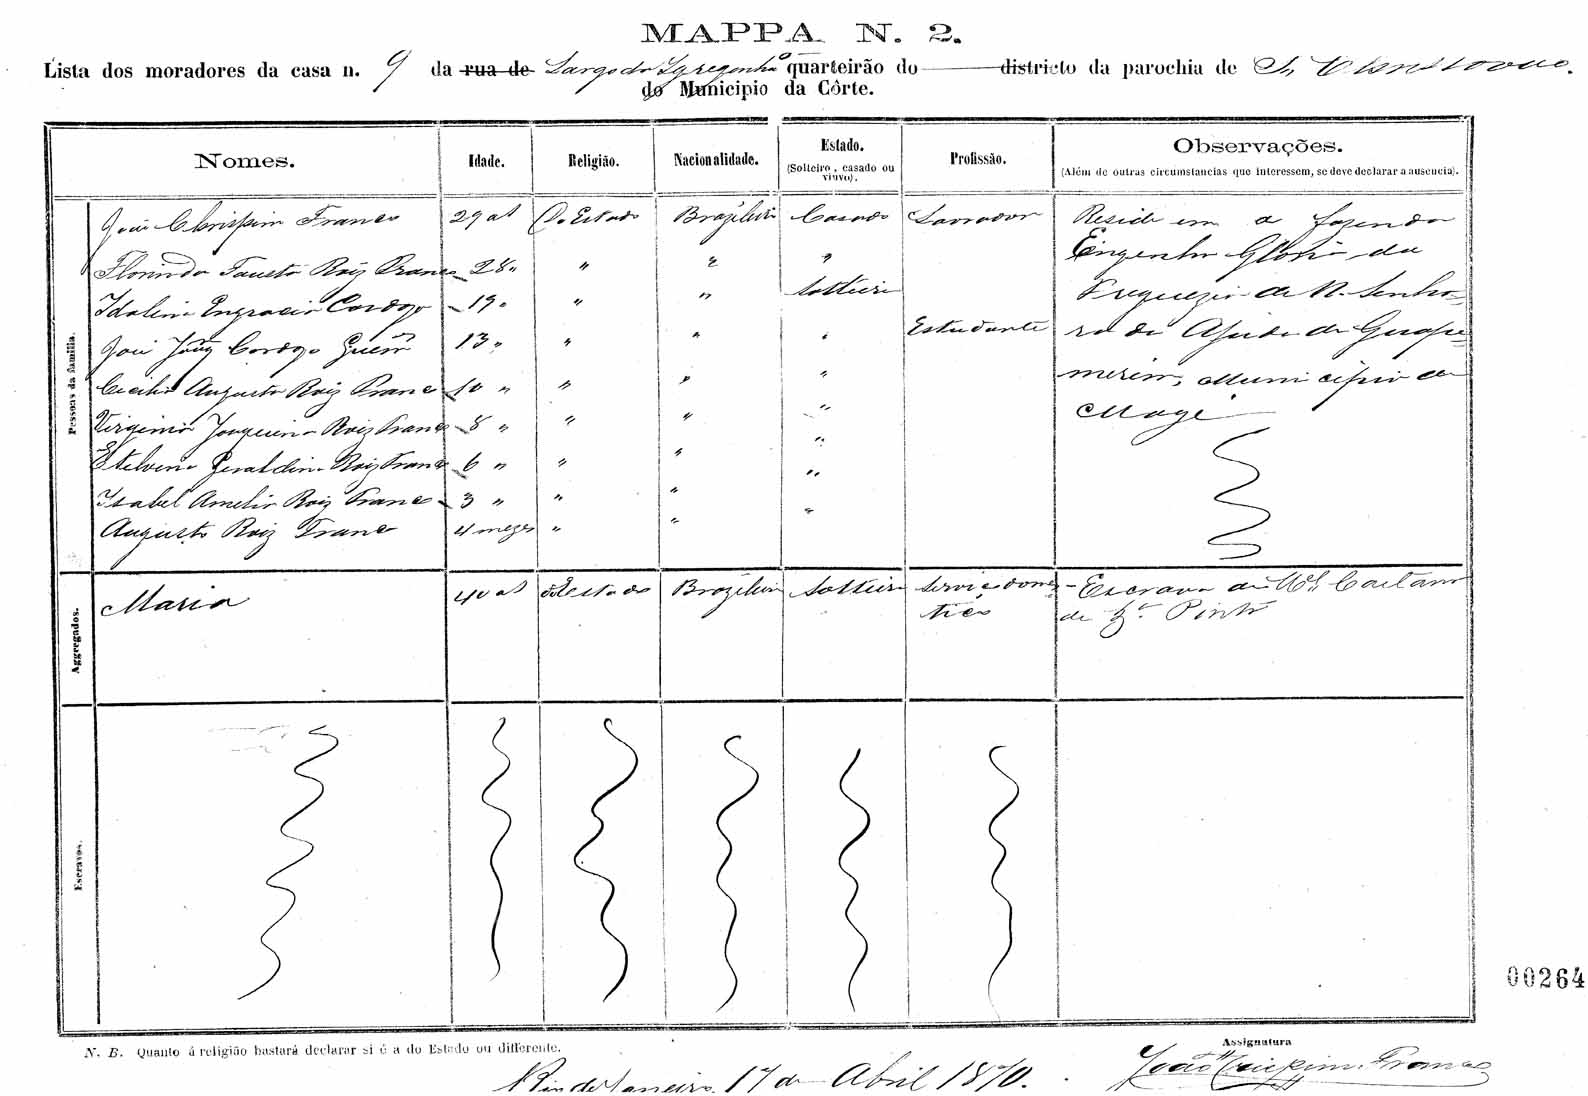 MAPPA N. 2.
Lista dos moradores da casa n. 9 da rua de Largo da Igregenha quarteirão do districto da parochia de S. Christovão.
do Municipio da Côrte.
Nomes. Idade. Religião. Nacionalidade. Estado. (Solteiro, casado ou viuvo). Profissão. Observações. (Além de outras circumstancias que interessem, se deve declarar a ausencia).
Pessoas da familia.
João Chrispim Franco 29 as Do Estado Brazileiro Casado Lavrador Reside em a fazenda
Florinda Fausta Roiz Franco 28 " " " " Engenho Gloria da
Idalina Engracia Cardozo 19 " " " Solteira Freguezia de N. Senho=
José Cardozo 13 " " " " Estudante ra da Ajuda de Guapi=
Cecilia Augusta Roiz Franco 10 " " " " merim, Municipio de
Virginia Joaquina Roiz Franco 8 " " " " Magé
Etelvina Geraldina Roiz Franco 6 " " " "
Isabel Amelia Roiz Franco 3 " " " "
Augusto Roiz Franco 4 mezes " " "
Aggregados.
Maria 40 as do Estado Brazileira Solteira Serviço domes- Escrava de Caetano
tico de Pinto
Escravos.
00264
N. B. Quanto á religião bastará declarar si é a do Estado ou differente.
Assignatura
Rio de Janeiro, 17 de Abril 1870.
João Crispim Franco